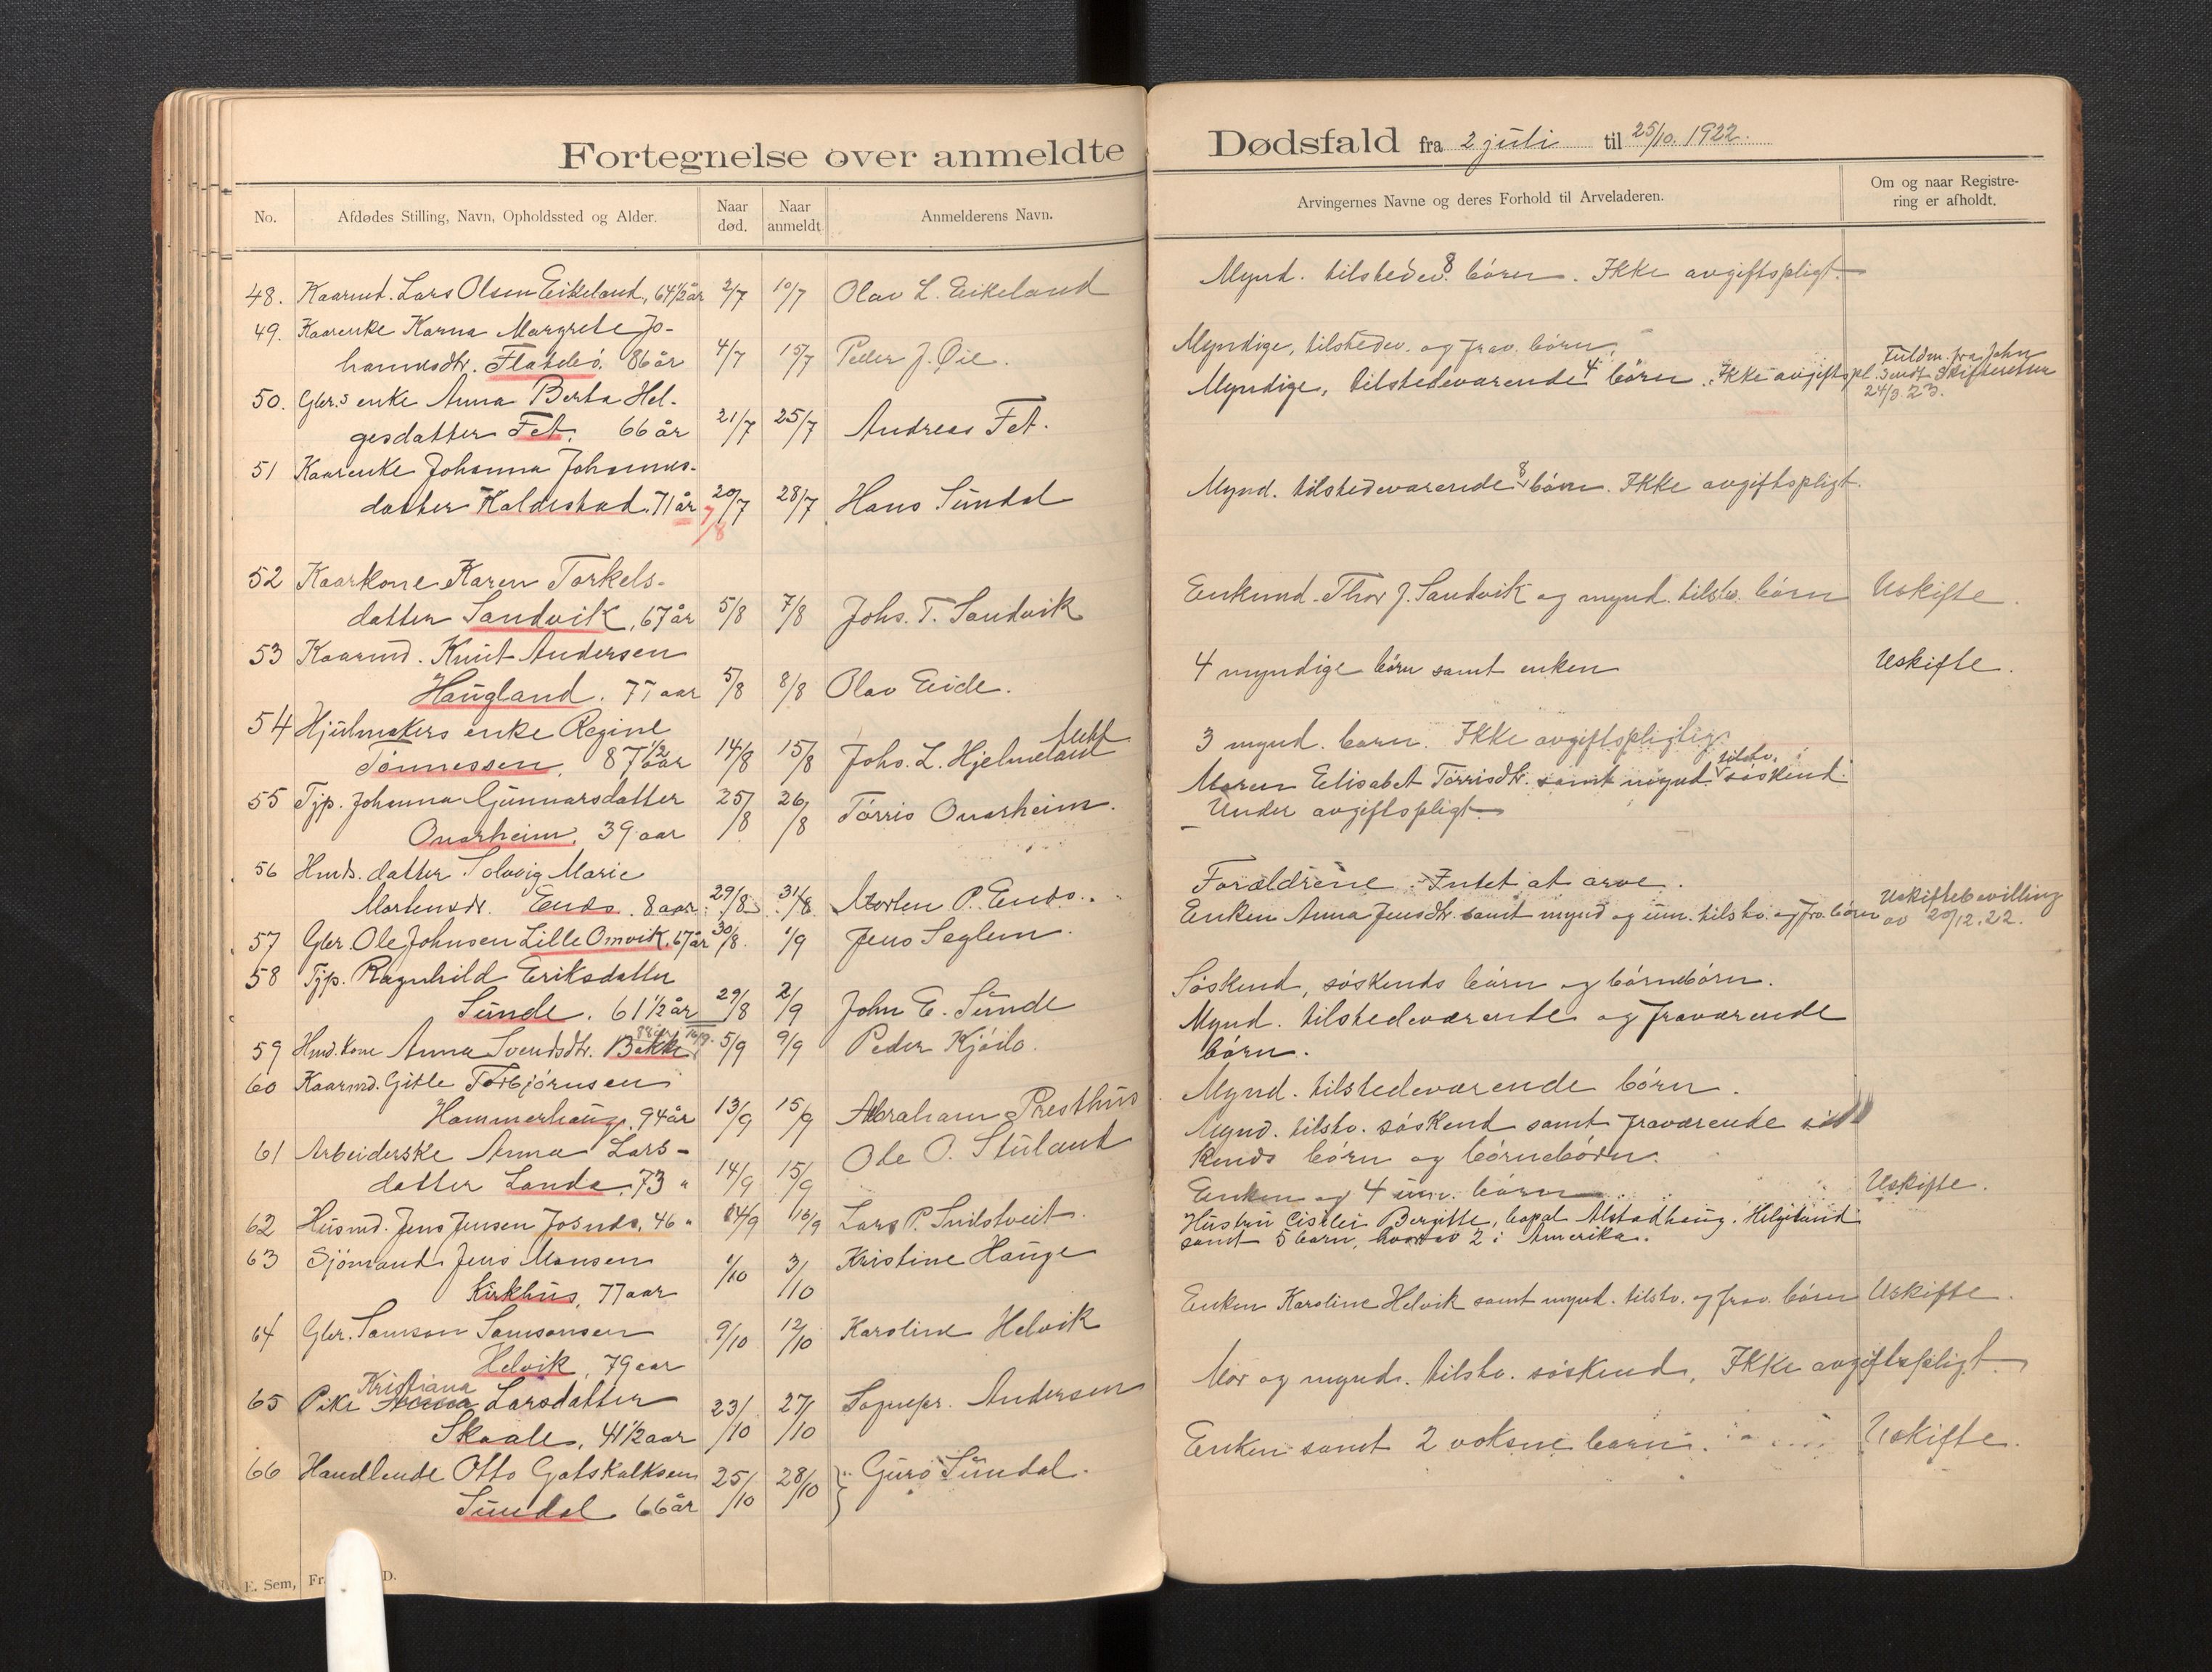 Fortegnelse over anmeldte Dødsfald fra 2 juli til 25/10. 1922.
No. Afdødes Stilling, Navn, Opholdssted og Alder. Naar død. Naar anmeldt. Anmelderens Navn. Arvingernes Navne og deres Forhold til Arveladeren. Om og naar Registrering er afholdt.
48. Kaarmd. Lars Olsen Eikeland, 64 1/2 år 2/7 10/7 Olav L. Eikeland Mynd. tilstedev. 8 børn. Ikke avgiftspligt.
49. Kaarenke Karna Margrete Jo-
hannesdtr. Flatebø. 86 år 4/7 15/7 Peder J. Øie. Myndige, tilstedev. og frav. børn.
Fuldm. fra John
sendt Skifteretten
24/3 23.
50. Gbr.s enke Anna Berta Hel-
gesdatter Fet. 66 år 21/7 25/7 Andreas Fet. Myndige, tilstedeværende 4 børn. Ikke avgiftspl.
51 Kaarenke Johanna Johannes-
datter Haldestad. 71 år 20/7 28/7 Hans Sundal Mynd. tilstedeværende 8 børn. Ikke avgiftspligt.
7/8
52 Kaarkone Karen Torkels-
datter Sandvik, 67 år 5/8 7/8 Johs. T. Sandvik Enkemd. Thor J. Sandvik og mynd. tilstv. børn Uskifte.
53 Kaarmd. Knut Andersen
Haugland. 77 aar 5/8 8/8 Olav Eide. 4 myndige børn samt enken Uskifte.
54 Hjulmakers enke Regine
Tønnessen, 87 1/2 aar 14/8 15/8 Johs. L. Hjelmeland 3 mynd. barn. Ikke avgiftspligtig.
55 Tjp. Johanna Gunnarsdatter 25/8 26/8 Tørris Onarheim. Maren Elisabet Tørrisdtr. samt mynd. tilstv. søskend.
Onarheim, 39 aar Under avgiftspligt
56 Hmds. datter Solveig Marie
Mortensdr. Enes. 8 aar 29/8 31/8 Morten P. Enes. Forældrene. Intet at arve.
57 Gbr. Ole Johnsen Lille Omvik, 67 år 30/8. 1/9 Jens Seglem. Enken Anna Jensdtr. samt mynd og um. tilstv. og frv. børn Uskiftebevilling
av 20/12.22.
58 Tjp. Ragnhild Eriksdatter
Sunde. 61 1/2 år 29/8 2/9 John E. Sunde Søskend, søskends børn og børnebørn.
59 Hmd. kone Anna Svendsdtr. Bakke 5/9 9/9 Peder Kjøilo. Mynd. tilstedeværende og fraværende
børn.
60 Kaarmd. Gitle Torbjørnsen
Hammerhaug. 94 år 13/9 15/9 Abraham Presthus Mynd. tilstedeværende børn.
61 Arbeiderske Anna Lars-
datter Landa, 73 " 14/9 15/9 Ole O. Stuland Mynd. tilstv. søskend samt fraværende søs
kends børn og børnebørn.
62 Husmd. Jens Jensen Josnes, 46 " 14/9 16/9 Lars P. Snilstveit. Enken og 4 um. børn Uskifte.
63 Sjømand Jens Monsen 1/10 3/10 Kristine Hauge Hustru Bergitte, bopæl Alstadhaug. Helgeland
Kirkhus, 77 aar samt 5 børn, hvorav 2 i Amerika.
64 Gbr. Samson Samsonsen 9/10 12/10 Karoline Helvik Enken Karoline Helvik samt mynd. tilstv. og frav. børn Uskifte.
Helvik, 79 aar
65 Pike Kristiana Larsdatter 23/10 27/10 Sognepr. Andersen Mor og mynd. tilstv. søskend, Ikke avgiftspligt.
Skaale, 41 1/2 aar
66 Handlende Otto Gotskalksen 25/10 28/10 Guro Sundal. Enken samt 2 voksne barn. Uskifte.
Sundal 66 år
E. Sem, Fr D.